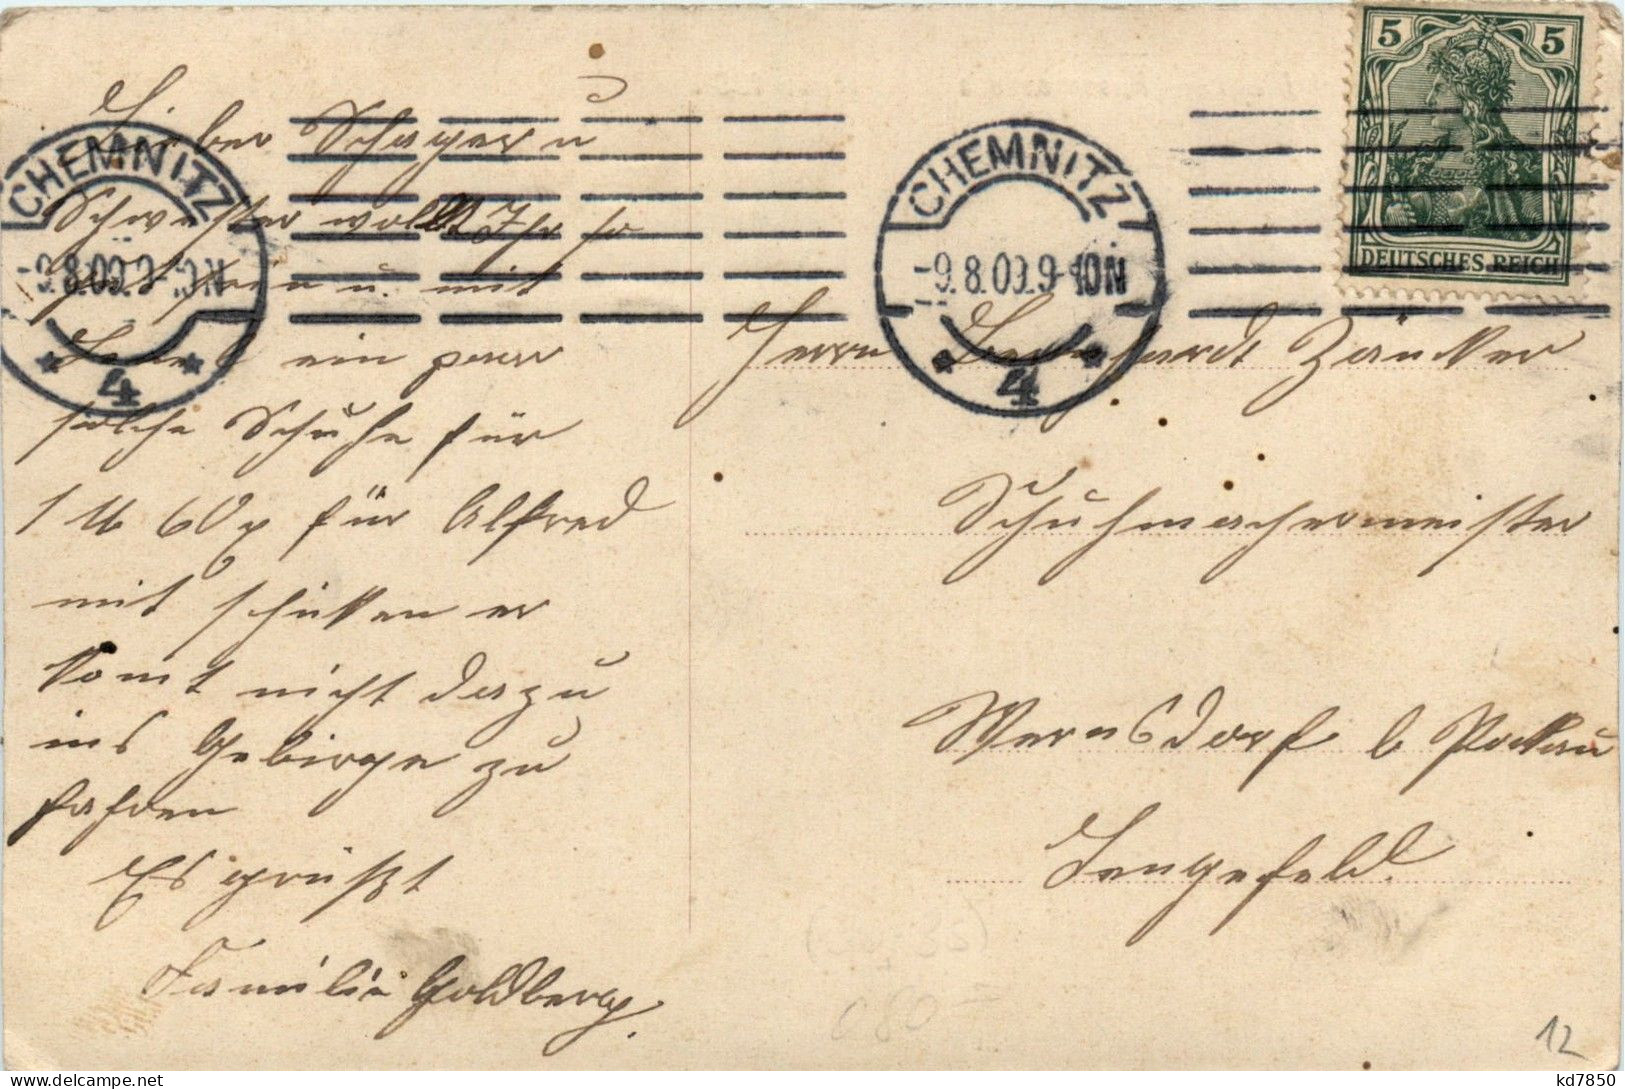 Lieber Schwager u
Schwester wollt Ihr so
gut sein u. mit
ein paar
solche Schuhe für
1 M 60 p für Alfred
mit schikken er
komt nicht dazu
ins Gebirge zu
fahren
Es grüßt
Familie Goldberg.
CHEMNITZ
-9.8.09.9-10N
4
CHEMNITZ
-9.8.09.9-10N
4
5 5
DEUTSCHES REICH
Herrn Bernhardt Zänker
Schuhmachermeister
Wernsdorf b Pokkau
Lengefeld.
12
kd7850